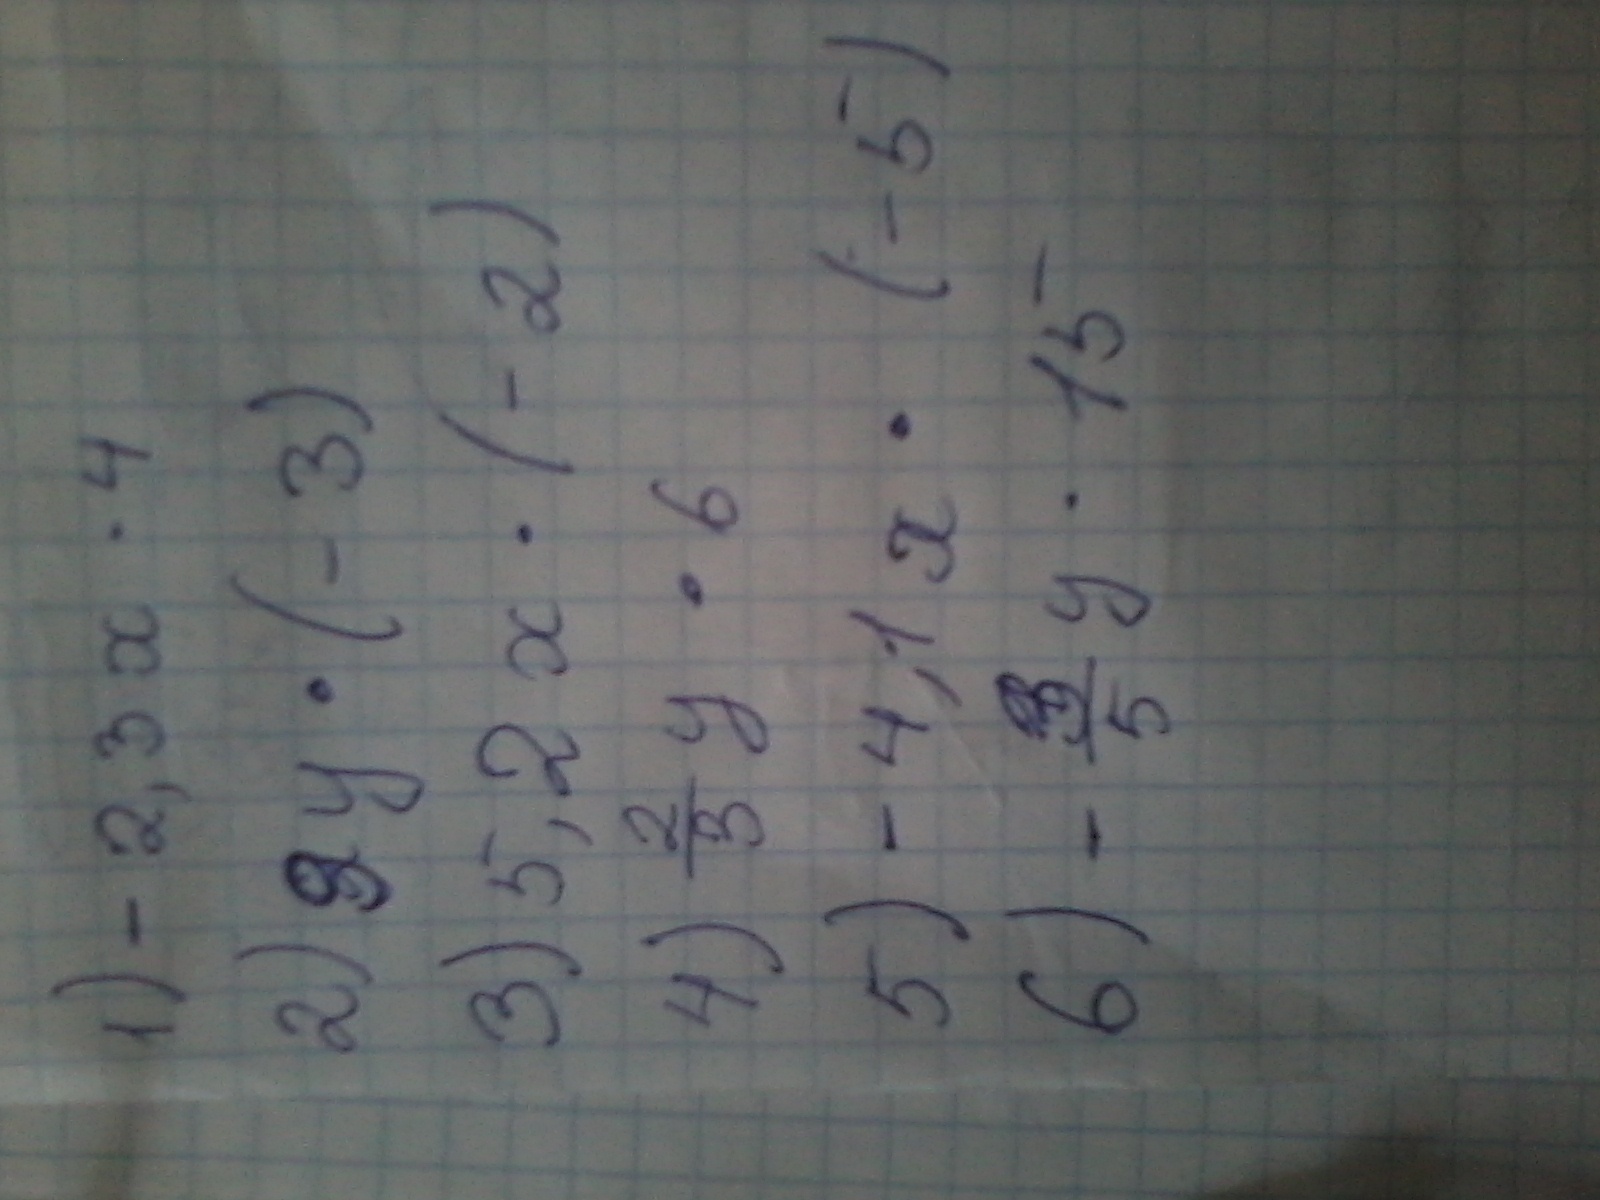 1) - 2,3 x · 4
2) 9 y · (- 3)
3) 5,2 x · (- 2)
4) 2/3 y · 6
5) - 4,1 x · (- 5)
6) - 3/5 y · 15